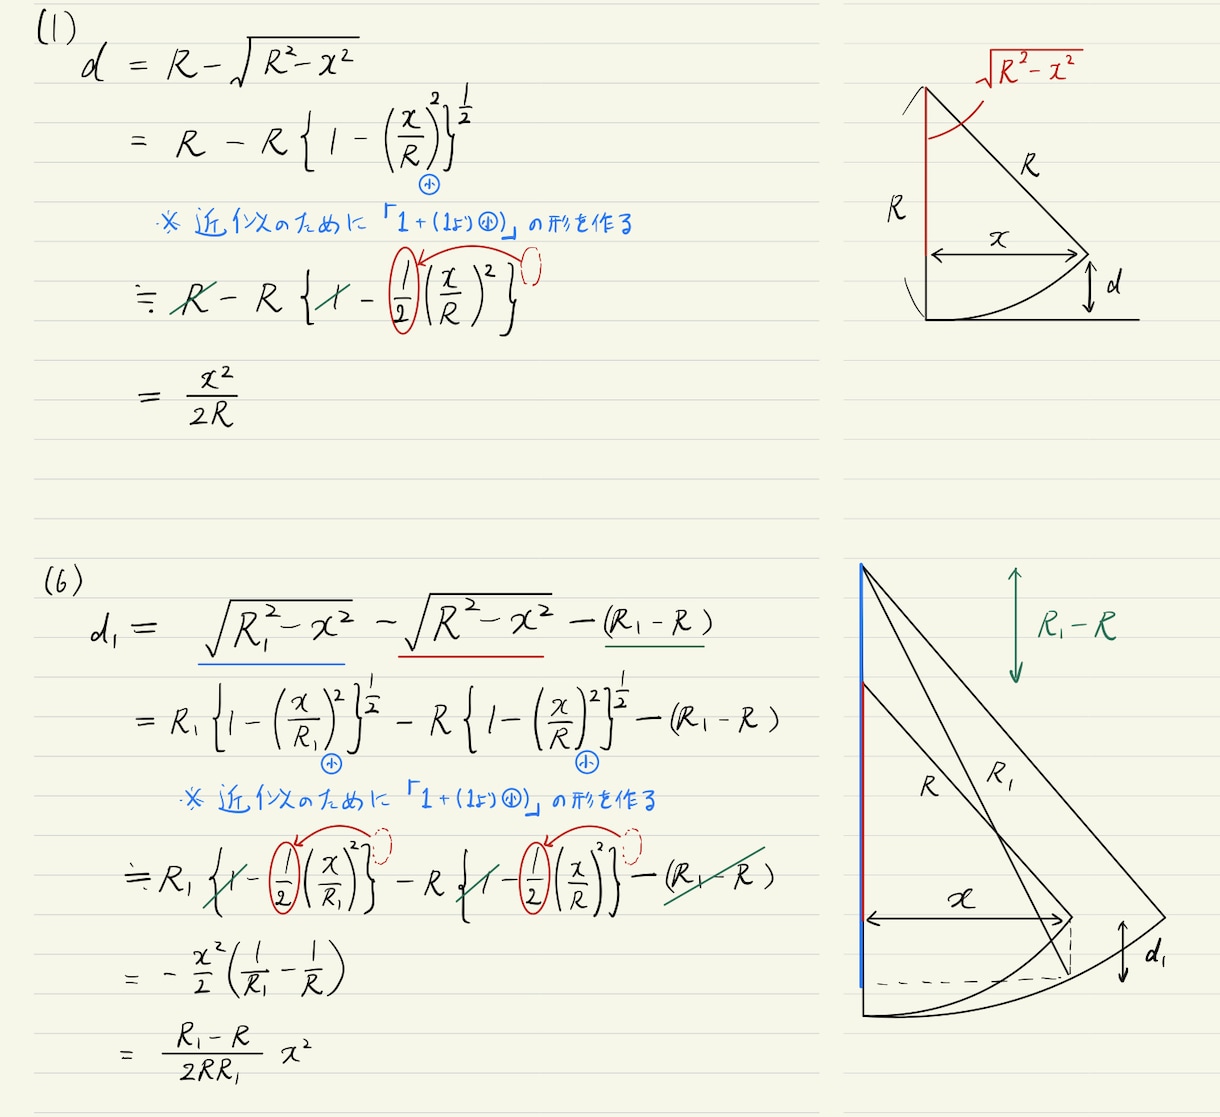 (1)
d = R - √(R² - x²)
= R - R{1 - (x/R)²}^(1/2)
小
※ 近似のために「1+(1より小)」の形を作る
≒ R - R{1 - 1/2 (x/R)²}
= x²/2R
√(R² - x²)
R
R
x
d
(6)
d₁ = √(R₁² - x²) - √(R² - x²) - (R₁ - R)
= R₁{1 - (x/R₁)²}^(1/2) - R{1 - (x/R)²}^(1/2) - (R₁ - R)
小 小
※ 近似のために「1+(1より小)」の形を作る
≒ R₁{1 - 1/2 (x/R₁)²} - R{1 - 1/2 (x/R)²} - (R₁ - R)
= - x²/2 (1/R₁ - 1/R)
= (R₁ - R)/(2RR₁) x²
R₁ - R
R
R₁
x
d₁